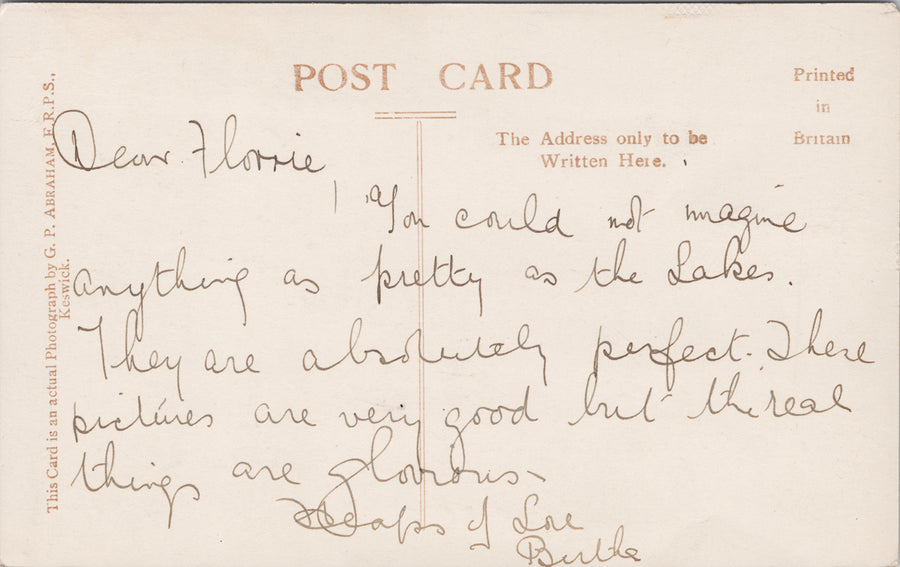 POST CARD
Printed
in
Britain
The Address only to be
Written Here.
This Card is an actual Photograph by G. P. ABRAHAM, F.R.P.S.,
Keswick.
Dear Florrie
You could not imagine
anything as pretty as the Lakes.
They are absolutely perfect. These
pictures are very good but the real
things are glorious
Heaps of Love
Bertha